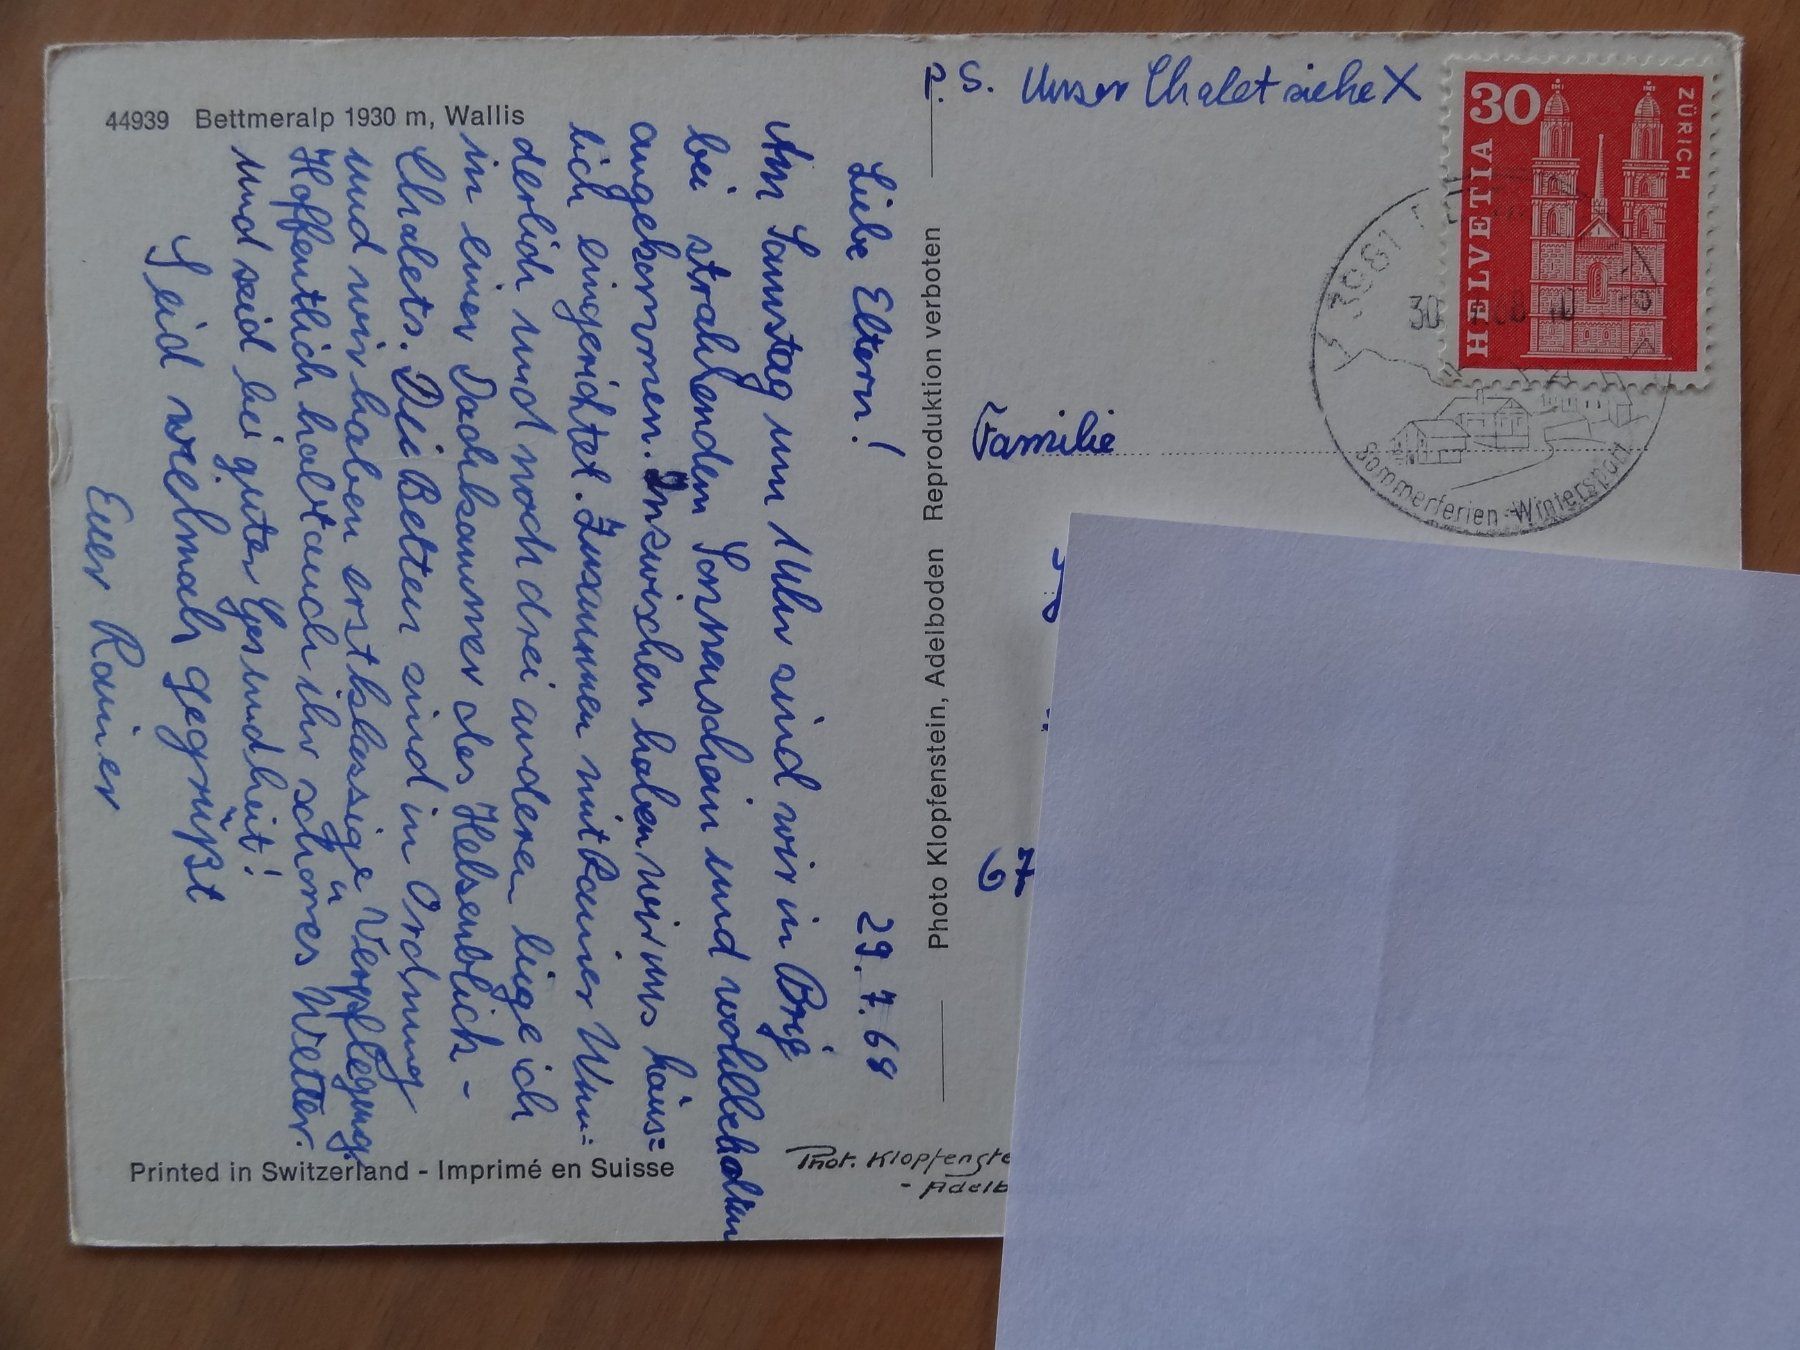 44939 Bettmeralp 1930 m, Wallis
P.S. Unser Chalet siehe X
29.7.68
Liebe Eltern!
Am Samstag um 1 Uhr sind wir in Brig
bei strahlenden Sonnenschein und wohlbehalten
angekommen. Inzwischen haben wir uns häus=
lich eingerichtet. Zusammen mit Rainer Wun=
derlich und noch drei anderen liege ich
in einer Dachkammer des Helsenblick-
Chalets. Die Betten sind in Ordnung
und wir haben erstklassige Verpflegung.
Hoffentlich habt auch ihr schönes Wetter
und seid bei guter Gesundheit!
Seid vielmals gegrüßt
Euer Rainer
Photo Klopfenstein, Adelboden Reproduktion verboten
Printed in Switzerland - Imprimé en Suisse
Phot. Klopfenste
- Adelb
HELVETIA 30 ZÜRICH
3981
30 68
Sommerferien-Wintersport
Familie
67